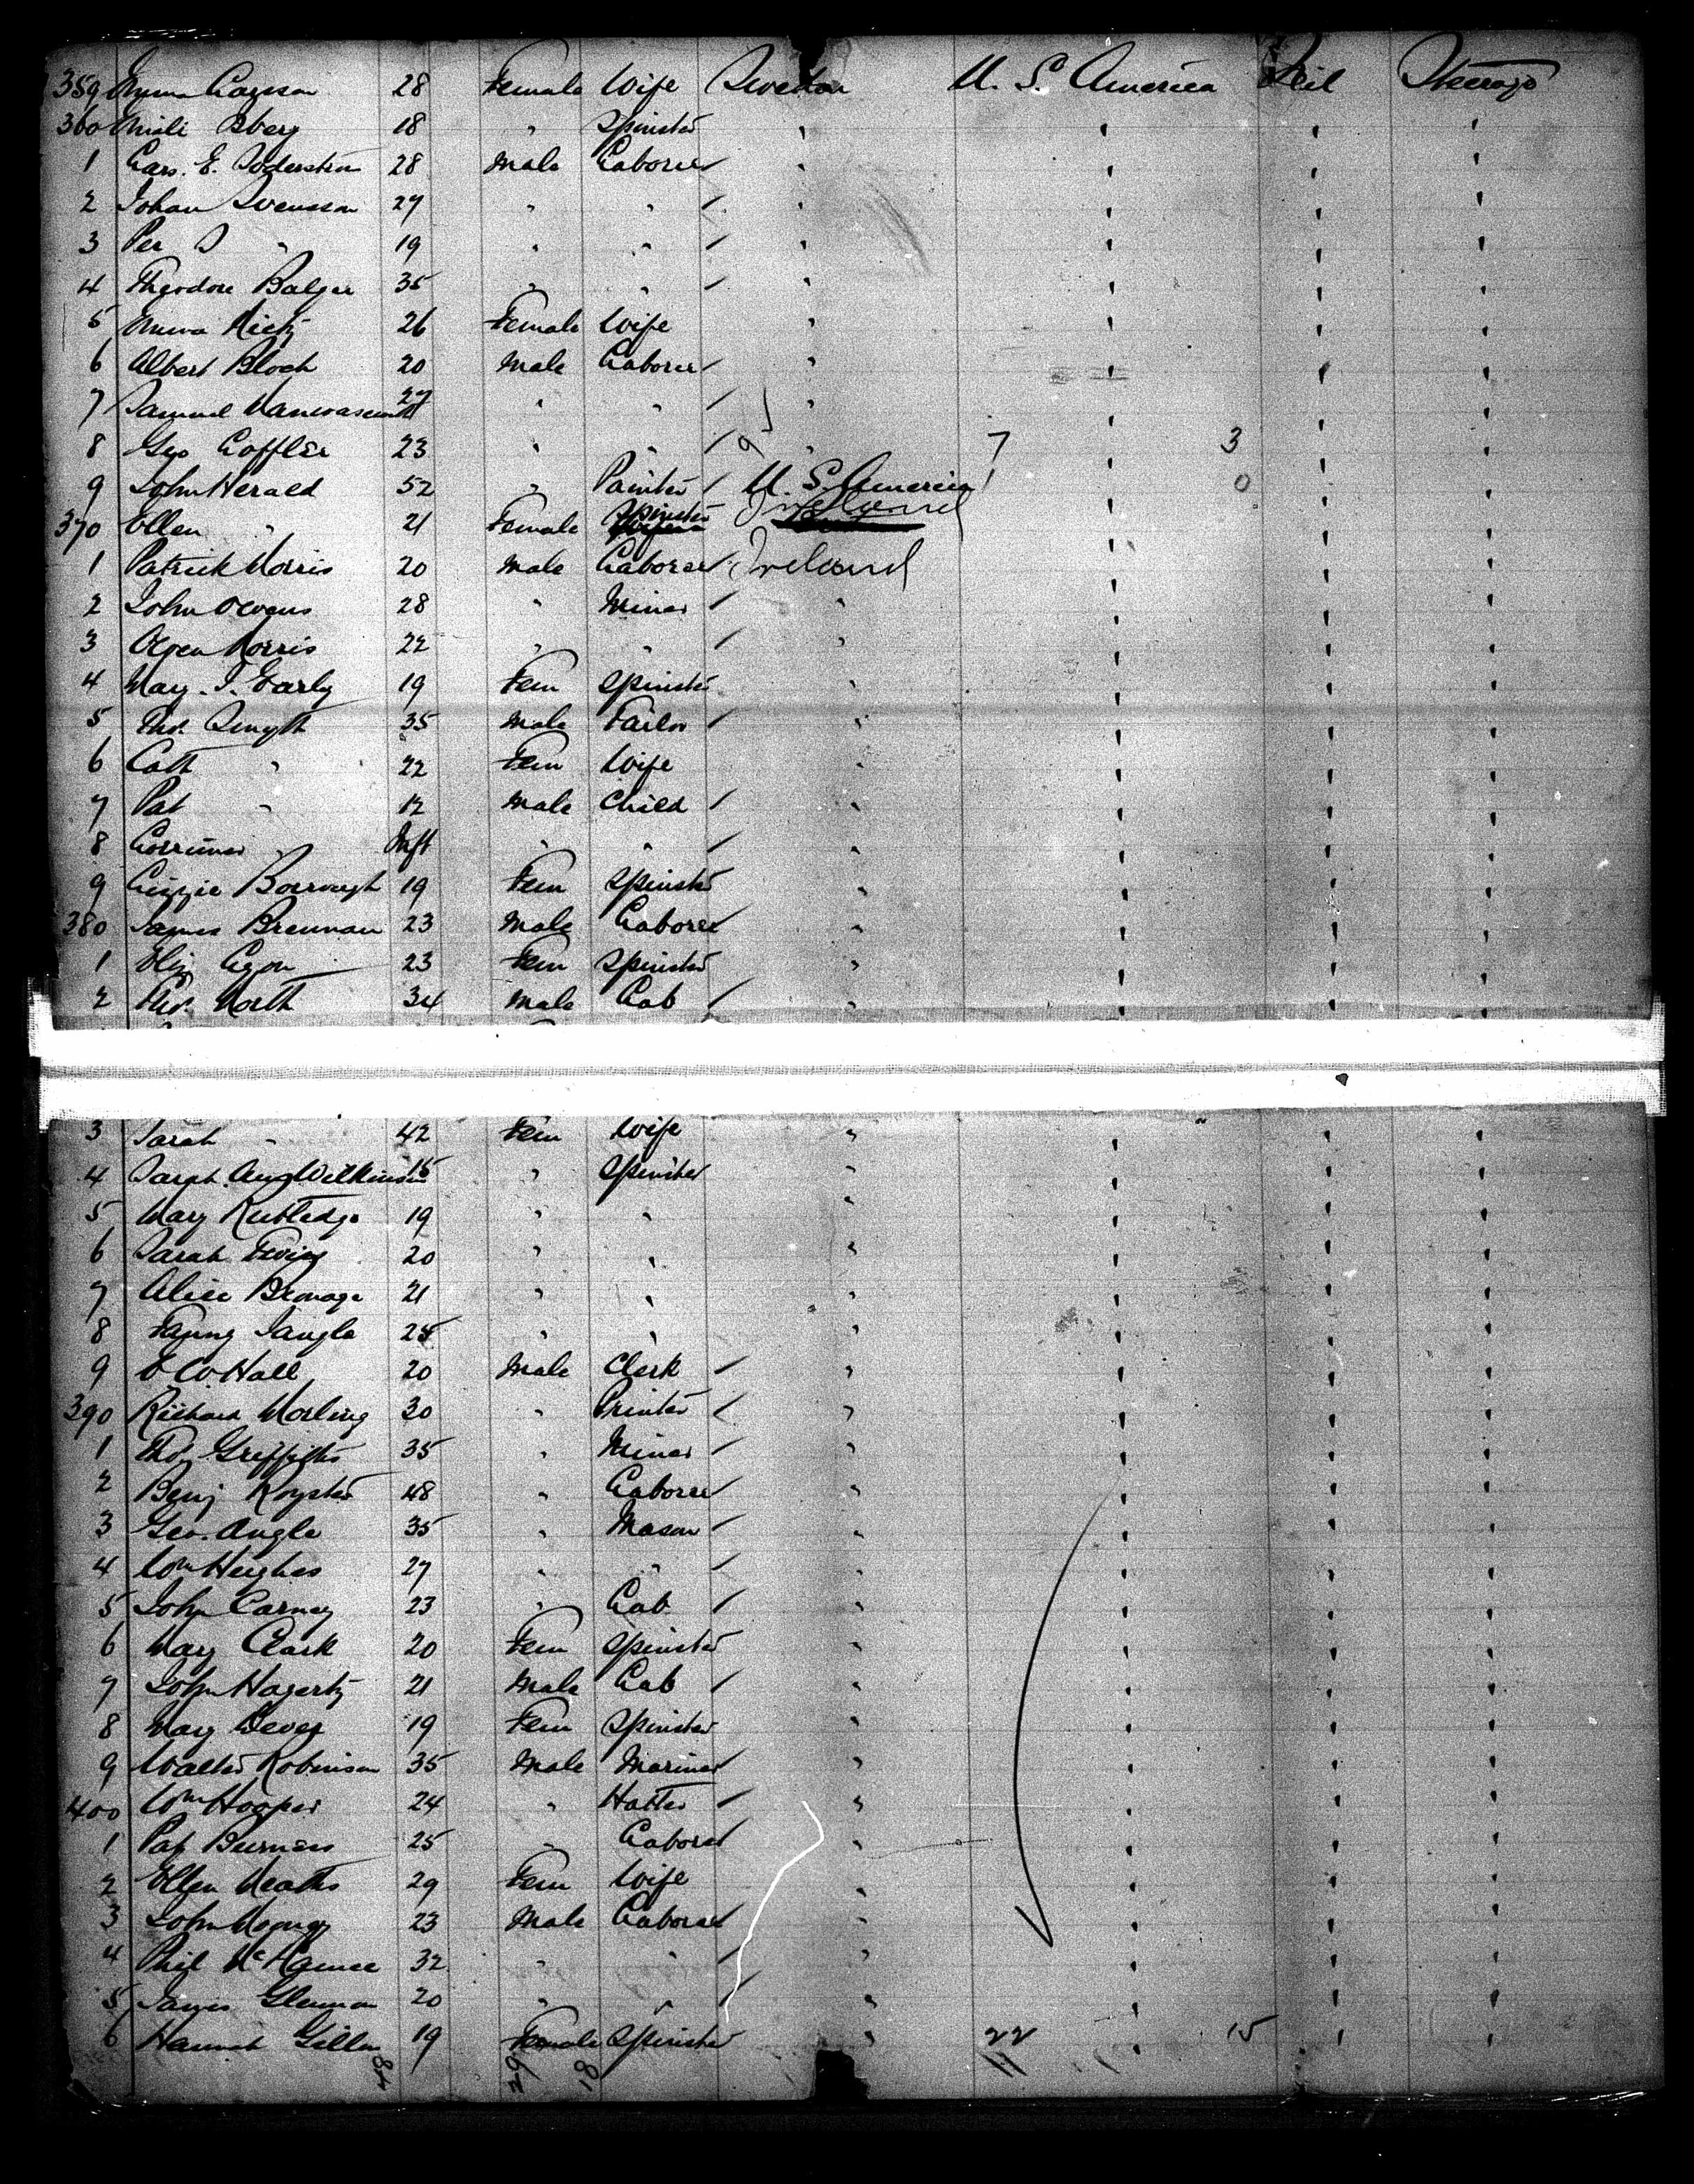 359 Emma Larsson 28 Female Wife Sweden U. S. America Nil Steerage
360 Mili Oberg 18 " Spinster " " " "
1 Lars. E. Soderstrom 28 Male Laborer / " " " "
2 Johan Svensson 27 " " / " " " "
3 Per S " 19 " " / " " " "
4 Theodore Balger 35 " " / " " " "
5 Emma 26 Female Wife " " " "
6 Albert Bloch 20 Male Laborer / " " " "
7 Samuel 27 " " / " " " "
8 Geo Loffler 23 " " / 9 " 7 " 3 " "
9 John Herald 52 " Painter / U. S. America 1 " 0 " "
370 Ellen " 21 Female Spinster Ireland " " "
1 Patrick Morris 20 Male Laborer / Ireland " " "
2 John Owens 28 " Miner / " " " "
3 Owen Morris 22 " " / " " " "
4 Mary. J. Early 19 Fem Spinster " " " "
5 Thos. Smyth 35 Male Tailor / " " " "
6 Cath " 22 Fem Wife " " " "
7 Pat " 12 Male Child / " " " "
8 " Inft " " / " " " "
9 Lizzie 19 Fem Spinster " " " "
380 James Brennan 23 Male Laborer / " " " "
1 Eliz Lyon 23 Fem Spinster " " " "
2 Thos. North 34 Male Lab / " " " "
3 Sarah " 42 Fem Wife " " " "
4 Sarah. Ann Wilkinson 15 " Spinster " " " "
5 Mary Rutledge 19 " " " " " "
6 Sarah Ewing 20 " " " " " "
7 Alice Bromage 21 " " " " " "
8 Fanny Jangle 25 " " " " " "
9 Hall 20 Male Clerk / " " " "
390 Richard Morling 30 " Printer / " " " "
1 Thos Griffiths 35 " Miner / " " " "
2 Benj Royster 48 " Laborer / " " " "
3 Geo. Angle 35 " Mason / " " " "
4 Wm Hughes 27 " " / " " " "
5 John Carney 23 " Lab / " " " "
6 Mary Clark 20 Fem Spinster " " " "
7 John Hagerty 21 Male Lab / " " " "
8 Mary Dever 19 Fem Spinster " " " "
9 Walter Robinson 35 Male Mariner / " " " "
400 Wm Hooper 24 " Hatter / " " " "
1 Pat 25 " Laborer / " " " "
2 Ellen 29 Fem Wife " " " "
3 John Mooney 23 Male Laborer / " " " "
4 Phil 32 " " / " " " "
5 James Glennon 20 " " / " " " "
6 Hannah Gillen 19 Female Spinster " 22 15 " "
48 29 18 11